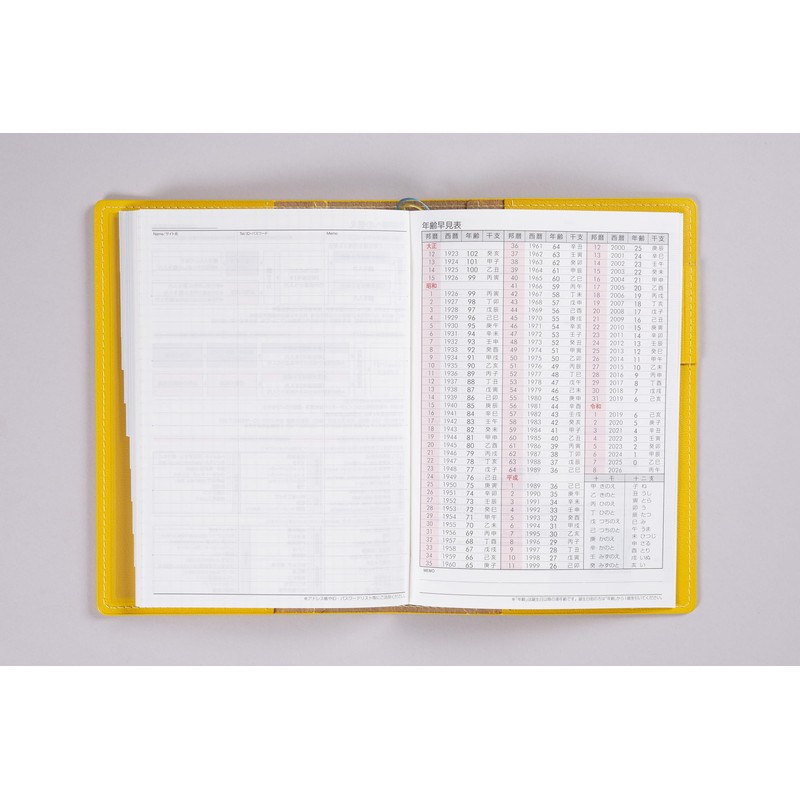 Name/サイト名 Tel/ID・パスワード Memo
年齢早見表
邦暦 西暦 年齢 干支
大正
12 1923 102 癸亥
13 1924 101 甲子
14 1925 100 乙丑
15 1926 99 丙寅
昭和
1 1926 99 丙寅
2 1927 98 丁卯
3 1928 97 戊辰
4 1929 96 己巳
5 1930 95 庚午
6 1931 94 辛未
7 1932 93 壬申
8 1933 92 癸酉
9 1934 91 甲戌
10 1935 90 乙亥
11 1936 89 丙子
12 1937 88 丁丑
13 1938 87 戊寅
14 1939 86 己卯
15 1940 85 庚辰
16 1941 84 辛巳
17 1942 83 壬午
18 1943 82 癸未
19 1944 81 甲申
20 1945 80 乙酉
21 1946 79 丙戌
22 1947 78 丁亥
23 1948 77 戊子
24 1949 76 己丑
25 1950 75 庚寅
26 1951 74 辛卯
27 1952 73 壬辰
28 1953 72 癸巳
29 1954 71 甲午
30 1955 70 乙未
31 1956 69 丙申
32 1957 68 丁酉
33 1958 67 戊戌
34 1959 66 己亥
35 1960 65 庚子
MEMO
邦暦 西暦 年齢 干支
36 1961 64 辛丑
37 1962 63 壬寅
38 1963 62 癸卯
39 1964 61 甲辰
40 1965 60 乙巳
41 1966 59 丙午
42 1967 58 丁未
43 1968 57 戊申
44 1969 56 己酉
45 1970 55 庚戌
46 1971 54 辛亥
47 1972 53 壬子
48 1973 52 癸丑
49 1974 51 甲寅
50 1975 50 乙卯
51 1976 49 丙辰
52 1977 48 丁巳
53 1978 47 戊午
54 1979 46 己未
55 1980 45 庚申
56 1981 44 辛酉
57 1982 43 壬戌
58 1983 42 癸亥
59 1984 41 甲子
60 1985 40 乙丑
61 1986 39 丙寅
62 1987 38 丁卯
63 1988 37 戊辰
64 1989 36 己巳
平成
1 1989 36 己巳
2 1990 35 庚午
3 1991 34 辛未
4 1992 33 壬申
5 1993 32 癸酉
6 1994 31 甲戌
7 1995 30 乙亥
8 1996 29 丙子
9 1997 28 丁丑
10 1998 27 戊寅
11 1999 26 己卯
邦暦 西暦 年齢 干支
12 2000 25 庚辰
13 2001 24 辛巳
14 2002 23 壬午
15 2003 22 癸未
16 2004 21 甲申
17 2005 20 乙酉
18 2006 19 丙戌
19 2007 18 丁亥
20 2008 17 戊子
21 2009 16 己丑
22 2010 15 庚寅
23 2011 14 辛卯
24 2012 13 壬辰
25 2013 12 癸巳
26 2014 11 甲午
27 2015 10 乙未
28 2016 9 丙申
29 2017 8 丁酉
30 2018 7 戊戌
31 2019 6 己亥
令和
1 2019 6 己亥
2 2020 5 庚子
3 2021 4 辛丑
4 2022 3 壬寅
5 2023 2 癸卯
6 2024 1 甲辰
7 2025 0 乙巳
8 2026 丙午
十干
甲 きのえ
乙 きのと
丙 ひのえ
丁 ひのと
戊 つちのえ
己 つちのと
庚 かのえ
辛 かのと
壬 みずのえ
癸 みずのと
十二支
子 ね
丑 うし
寅 とら
卯 う
辰 たつ
巳 み
午 うま
未 ひつじ
申 さる
酉 とり
戌 いぬ
亥 い